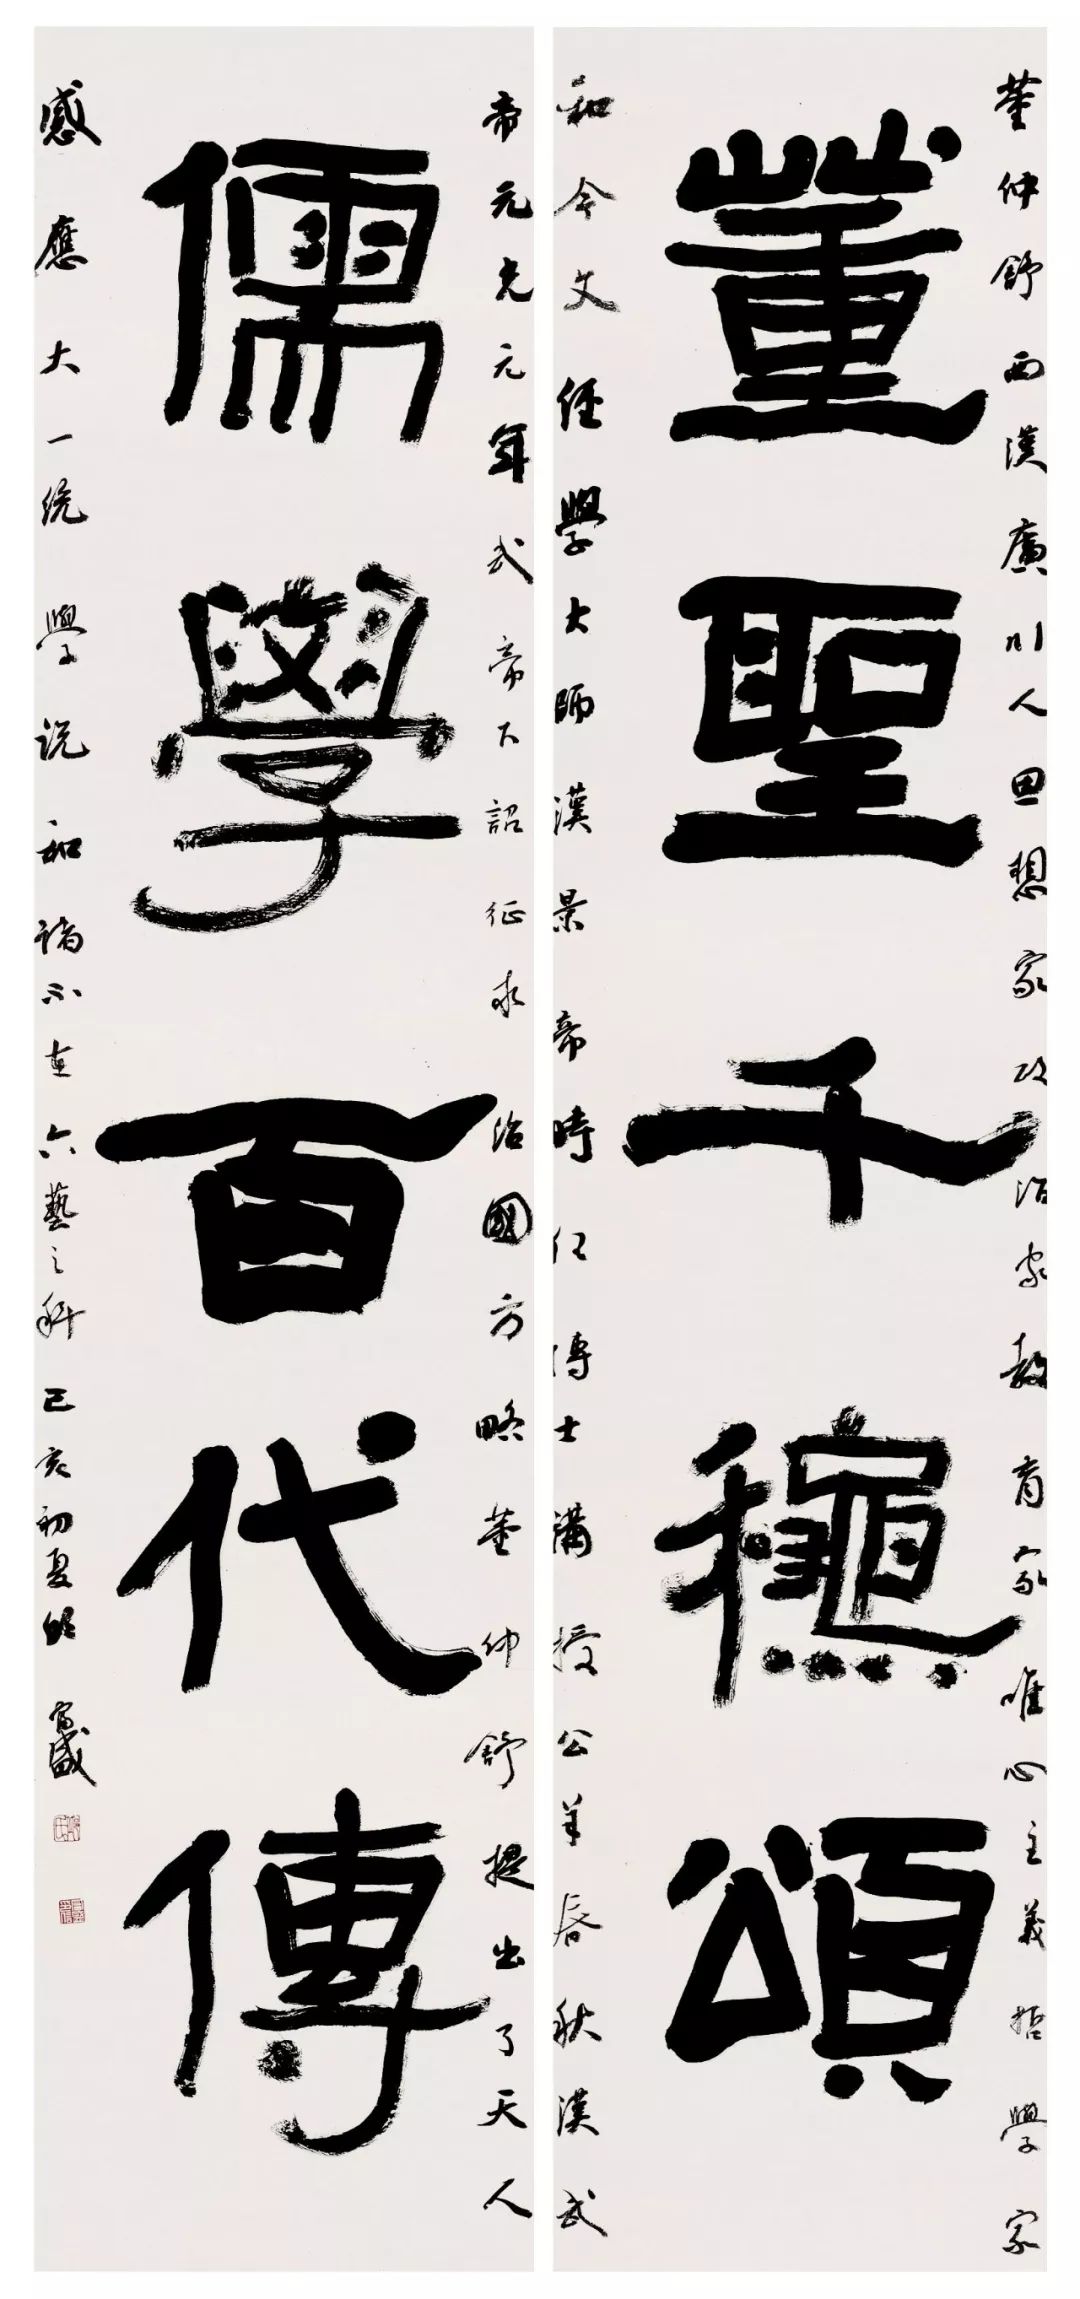 董仲舒西漢廣川人思想家政治家教育家唯心主義哲學家
董聖千穐頌
和今文經學大師漢景帝時任博士講授公羊春秋漢武
帝元光元年武帝下詔征求治國方略董仲舒提出了天人
儒學百代傳
感應大一統學說和諸不在六藝之科己亥初夏